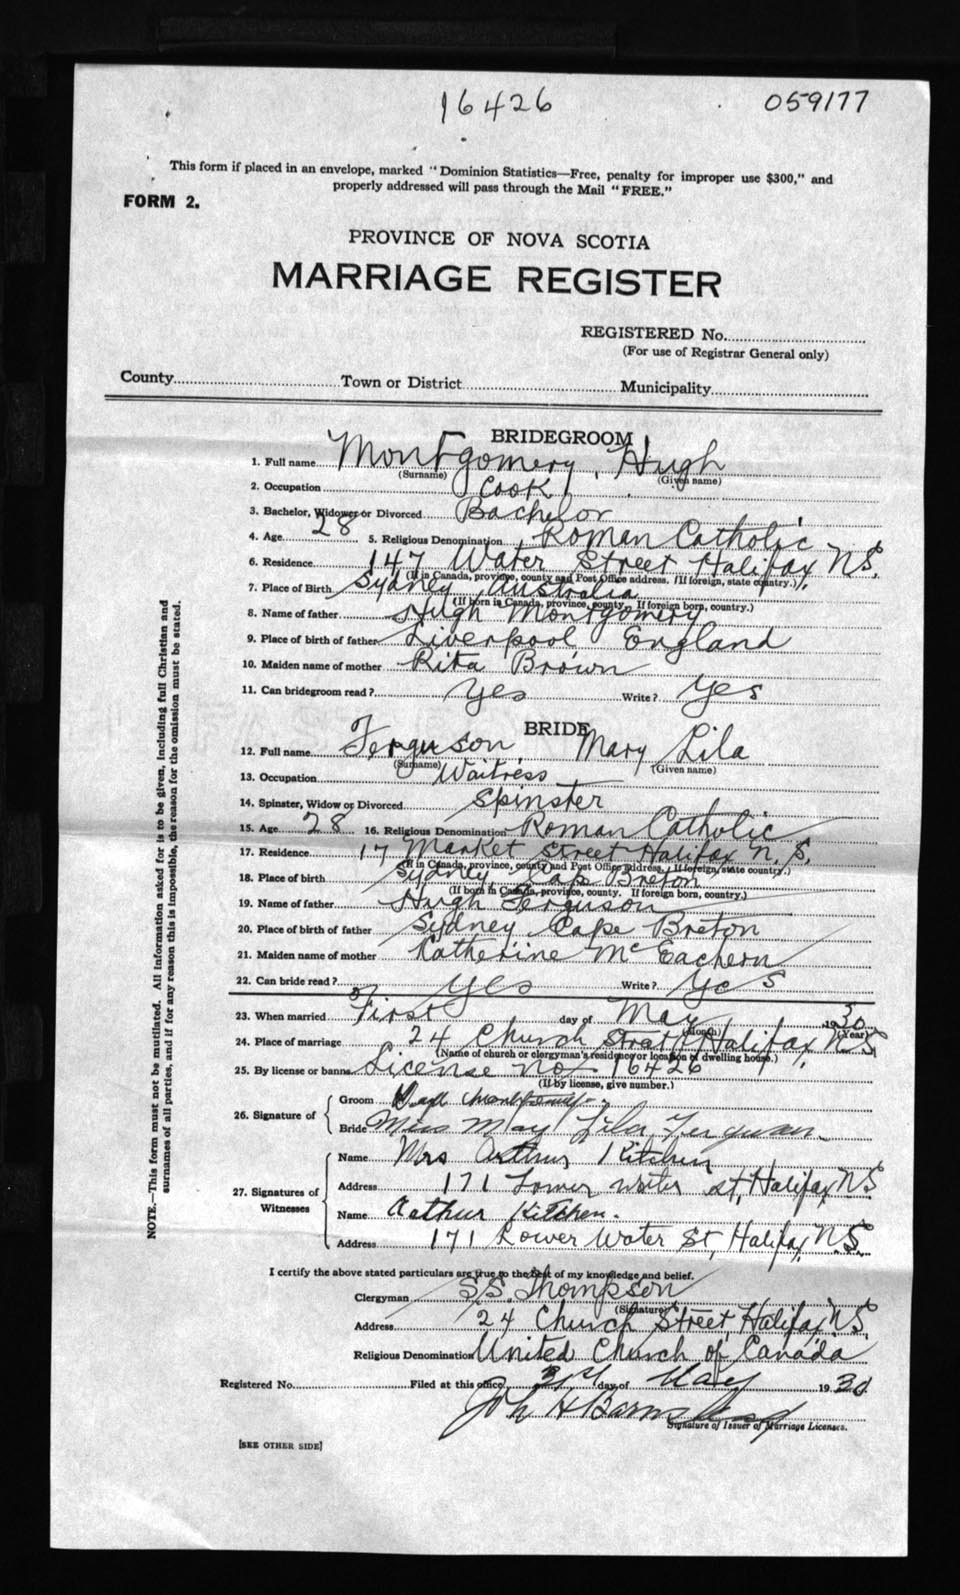 16426 059177
This form if placed in an envelope, marked "Dominion Statistics—Free, penalty for improper use $300," and
properly addressed will pass through the Mail "FREE."
FORM 2.
PROVINCE OF NOVA SCOTIA
MARRIAGE REGISTER
REGISTERED No.
(For use of Registrar General only)
County Town or District Municipality
BRIDEGROOM
1. Full name Montgomery, Hugh
(Surname) (Given name)
2. Occupation Cook
3. Bachelor, Widower or Divorced Bachelor
4. Age 28 5. Religious Denomination Roman Catholic
6. Residence 147 Water Street Halifax N.S.
(If in Canada, province, county and Post Office address. If foreign, state country.)
7. Place of Birth Sydney Australia
(If born in Canada, province, county. If foreign born, country.)
8. Name of father Hugh Montgomery
9. Place of birth of father Liverpool England
10. Maiden name of mother Rita Brown
11. Can bridegroom read? Yes Write? Yes
BRIDE
12. Full name Ferguson Mary Lila
(Surname) (Given name)
13. Occupation Waitress
14. Spinster, Widow or Divorced Spinster
15. Age 28 16. Religious Denomination Roman Catholic
17. Residence 17 Market Street Halifax N.S.
(If in Canada, province, county and Post Office address. If foreign, state country.)
18. Place of birth Sydney, Cape Breton
(If born in Canada, province, county. If foreign born, country.)
19. Name of father Hugh Ferguson
20. Place of birth of father Sydney Cape Breton
21. Maiden name of mother Katherine McEachern
22. Can bride read? Yes Write? Yes
23. When married First day of May 1930
(Month) (Year)
24. Place of marriage 24 Church Street Halifax, N.S.
(Name of church or clergyman's residence or location of dwelling house.)
25. By license or banns License no. 16426
(If by license, give number.)
26. Signature of
Groom Montgomery
Bride Miss May Lila Ferguson
27. Signatures of Witnesses
Name Mrs Arthur Kitchen
Address 171 Lower Water St, Halifax NS
Name Arthur Kitchen.
Address 171 Lower Water St, Halifax, N.S.
I certify the above stated particulars are true to the best of my knowledge and belief.
Clergyman S.S. Thompson
(Signature)
Address 24 Church Street, Halifax N.S.
Religious Denomination United Church of Canada
Registered No. Filed at this office 31st day of May 1930
Joh H Barnstead
Signature of Issuer of Marriage Licenses.
[SEE OTHER SIDE]
NOTE.—This form must not be mutilated. All information asked for is to be given, including full Christian and
surnames of all parties, and if for any reason this is impossible, the reason for the omission must be stated.